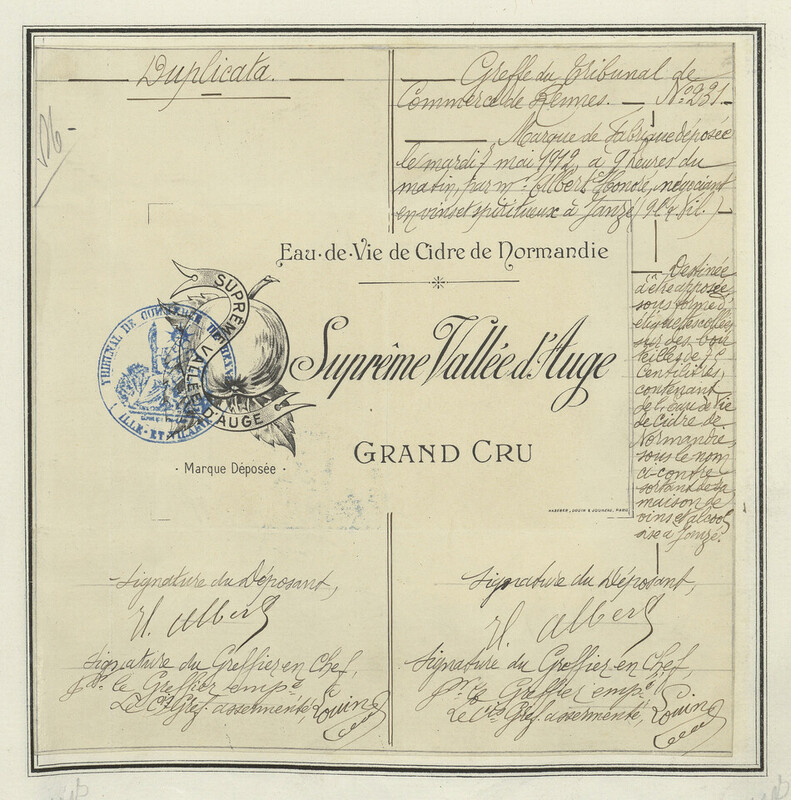 Duplicata.
Greffe du Tribunal de
Commerce de Rennes. N° 231.
Marque de Fabrique déposée
le mardi 7 mai 1912, à 9 heures du
matin, par Mr. Albert Honoré, négociant
en vins et spiritueux à Janzé
Eau-de-Vie de Cidre de Normandie
SUPRÊME VALLÉE D'AUGE
Suprême Vallée d'Auge
GRAND CRU
· Marque Déposée ·
TRIBUNAL DE COMMERCE DE RENNES
ILLE-ET-VILAINE
PARIS
Destinée
à être apposée
sous forme d'
étiquettes collées
sur des bou
teilles de
centilitres,
contenant
de l'eau de Vie
de Cidre de
Normandie,
sous le nom
ci-contre
sortant de sa
maison de
vins et alcools
sise à Janzé.
Signature du Déposant,
H. Albert
Signature du Greffier en Chef,
Pr. le Greffier empé.
Le Cis Gref. assermenté,
Signature du Déposant,
H. Albert
Signature du Greffier en Chef,
Pr. le Greffier empé.
Le Cis Gref. assermenté,